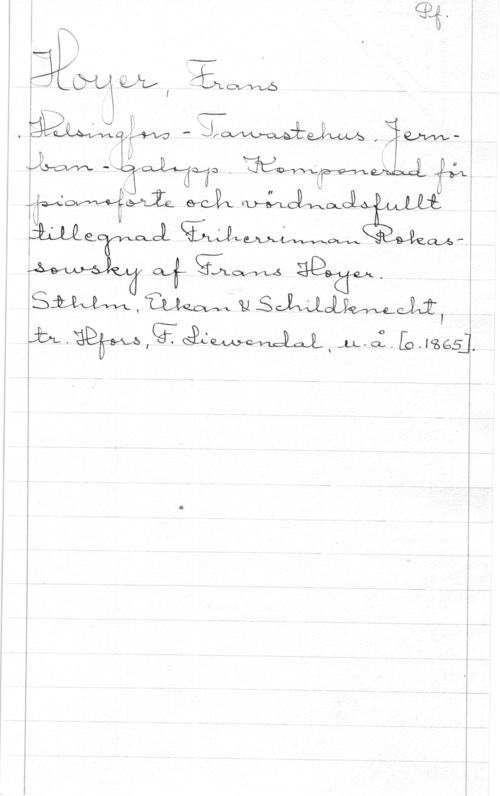 Pf.
Hoyer, Frans
Helsingfors - Tawastehus. Jern-
ban - galopp. Komponerad för
pianoforte och vördnadsfullt
tillegnad Friherrinnan Rokas-
sowsky af Frans Hoyer.
Sthlm, Elkan & Schildknecht,
tr. Hfors, F. Liewendal, u.å. [o.1865].